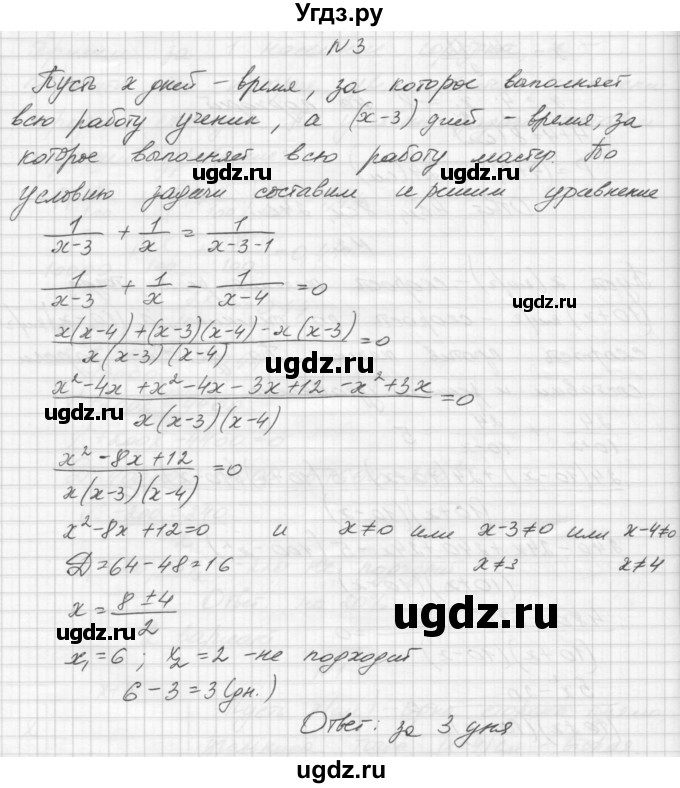 Угдз.ру
N3
Пусть x дней – время, за которое выполняет
всю работу ученик, а (x-3) дней – время, за
которое выполняет всю работу мастер. По
ugdz.ru ugdz.ru
условию задачи составим и решим уравнение
1/(x-3) + 1/x = 1/(x-3-1)
1/(x-3) + 1/x - 1/(x-4) = 0
ugdz.ru
(x(x-4)+(x-3)(x-4)-x(x-3))/(x(x-3)(x-4)) = 0
ugdz.ru
(x²-4x+x²-4x-3x+12-x²+3x)/(x(x-3)(x-4)) = 0
ugdz.ru
(x²-8x+12)/(x(x-3)(x-4)) = 0
x²-8x+12=0 и x≠0 или x-3≠0 или x-4≠0
D=64-48=16 x≠3 x≠4
x = (8±4)/2
ugdz.ru
ugdz.ru
x₁=6; x₂=2 -не подходит
6-3=3(дн.)
Ответ: за 3 дня
ugdz.ru